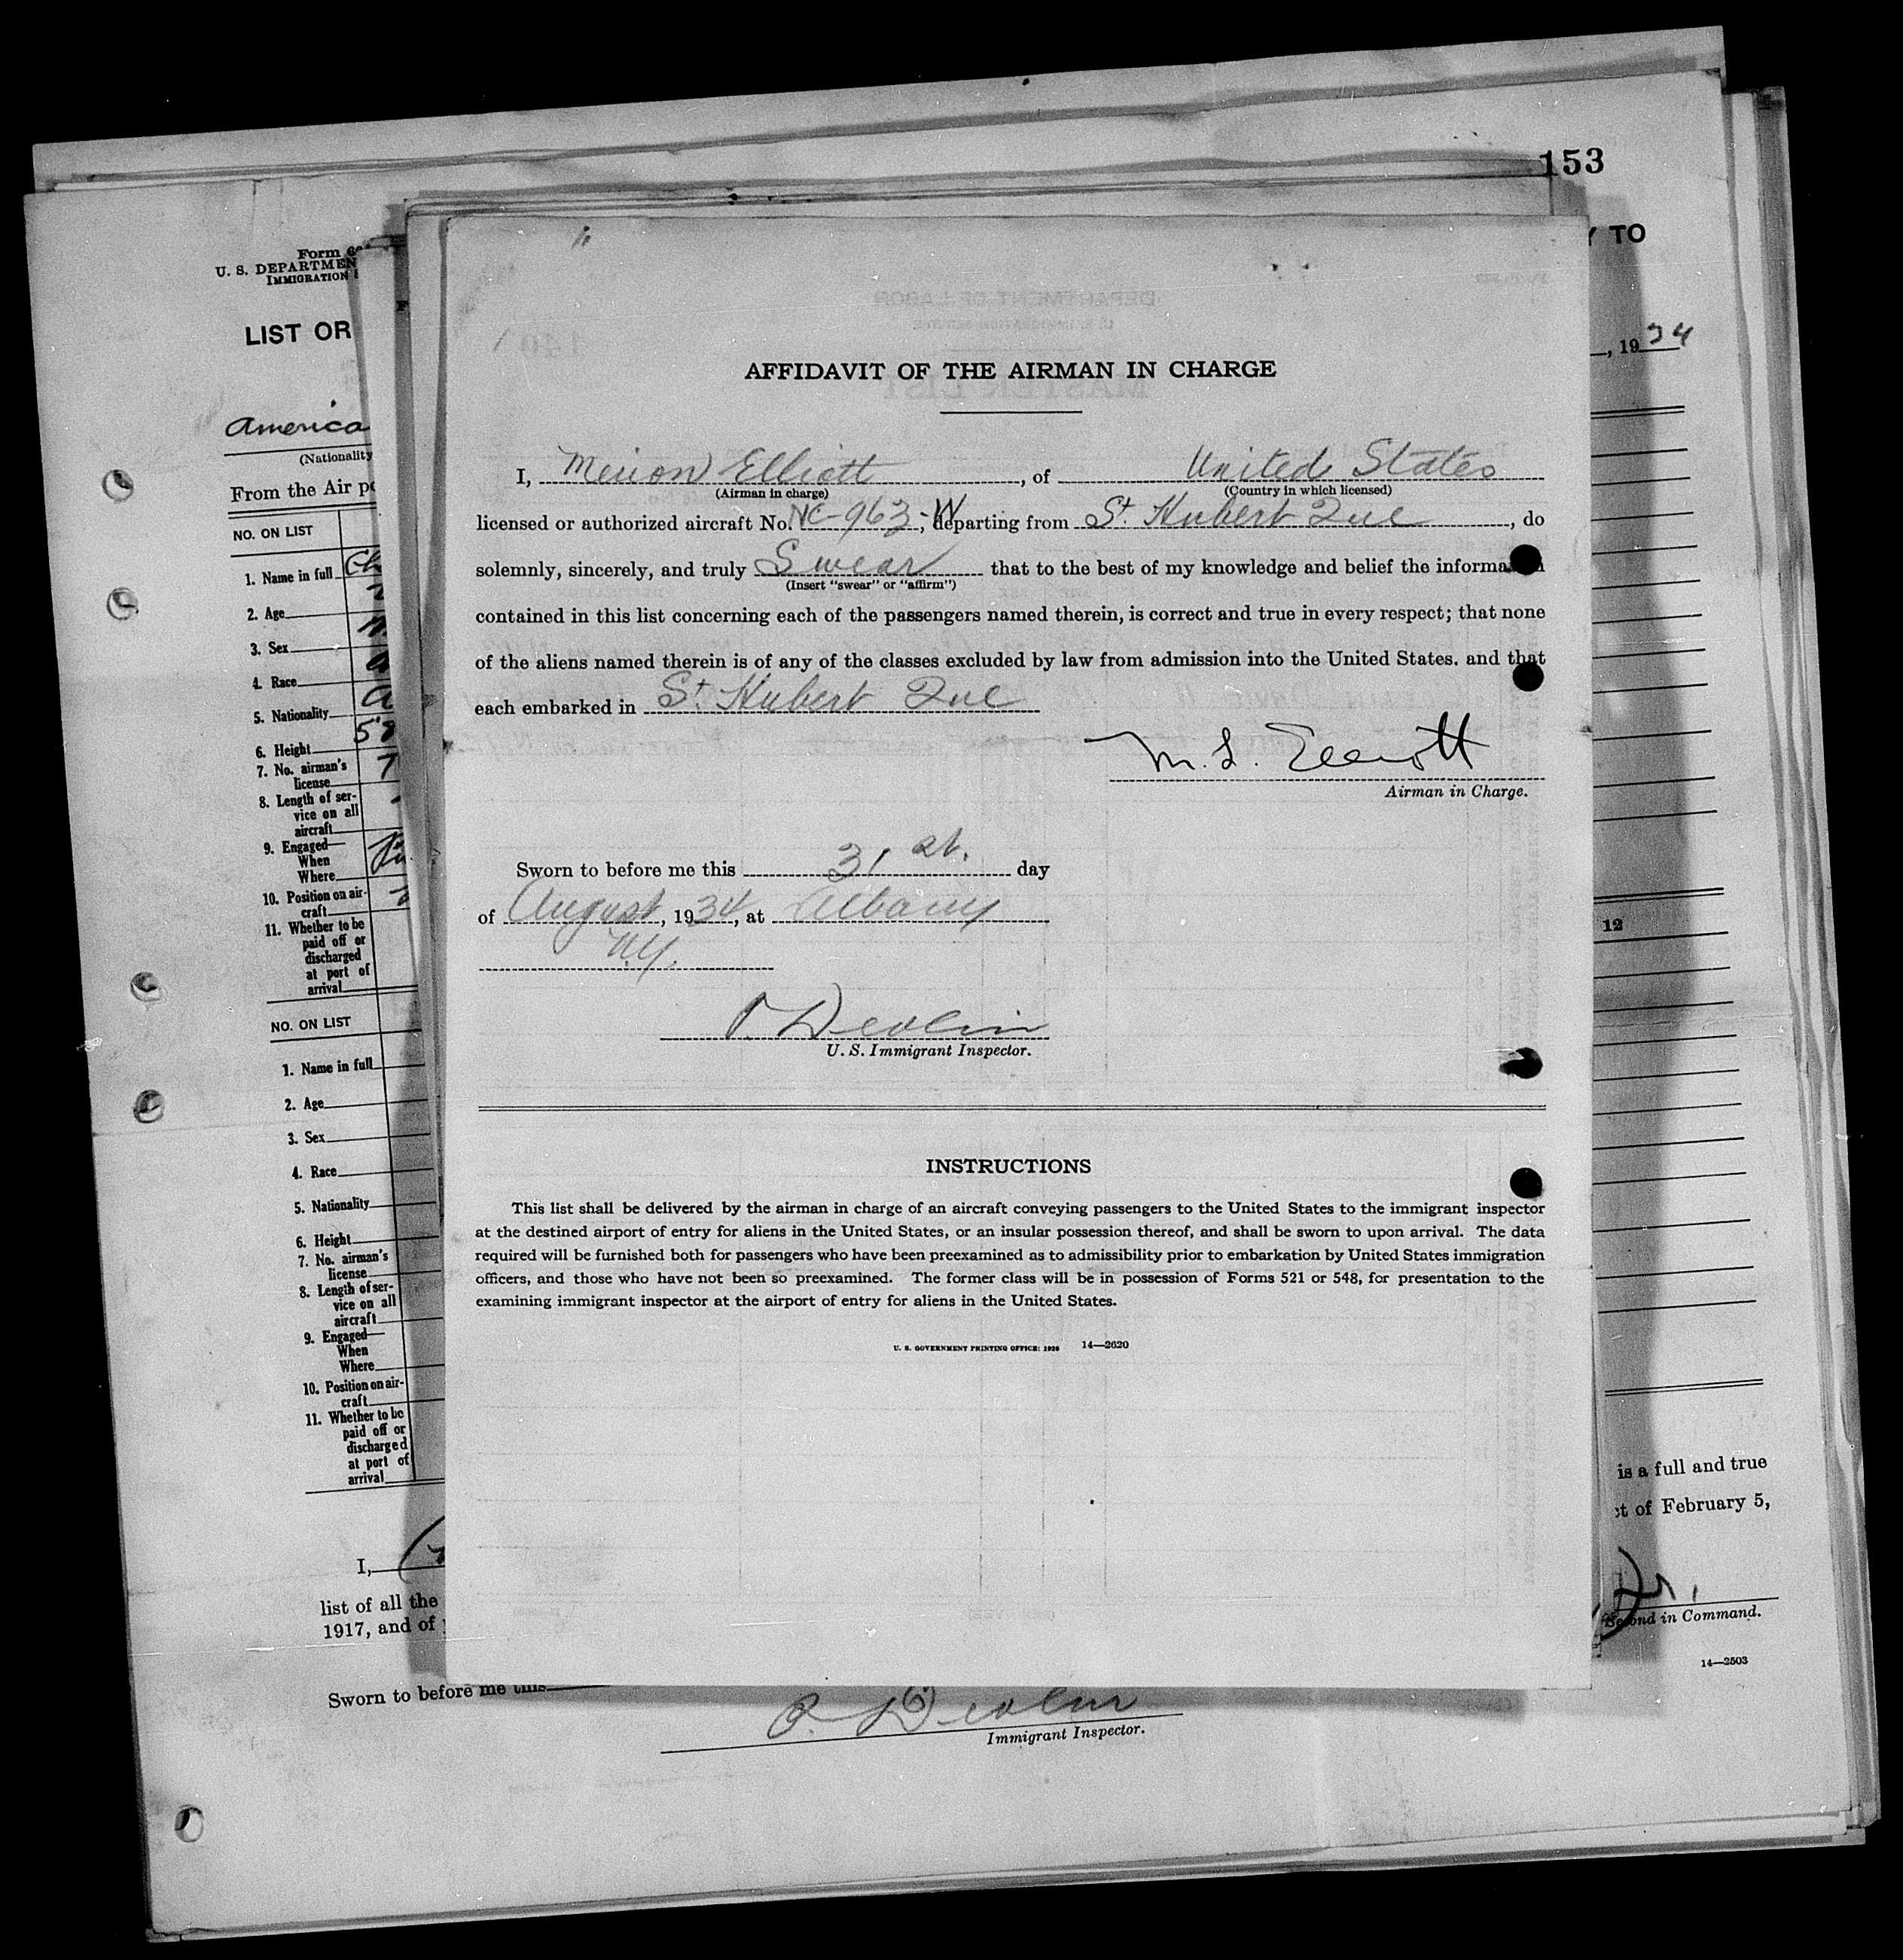 153
Y TO
, 1934
Form
U. S. DEPARTMEN
IMMIGRATION
LIST OR
America
(Nationality
From the Air po
NO. ON LIST
1. Name in full
2. Age
3. Sex
4. Race
5. Nationality
6. Height
7. No. airman's
license
8. Length of ser-
vice on all
aircraft
9. Engaged—
When
Where
10. Position on air-
craft
11. Whether to be
paid off or
discharged
at port of
arrival
NO. ON LIST
1. Name in full
2. Age
3. Sex
4. Race
5. Nationality
6. Height
7. No. airman's
license
8. Length of ser-
vice on all
aircraft
9. Engaged—
When
Where
10. Position on air-
craft
11. Whether to be
paid off or
discharged
at port of
arrival
I,
list of all the
1917, and of
Sworn to before me this
AFFIDAVIT OF THE AIRMAN IN CHARGE
I, Merion Elliott, of United States
(Airman in charge) (Country in which licensed)
licensed or authorized aircraft No. NC-963-W, departing from St. Hubert Que, do
solemnly, sincerely, and truly Swear that to the best of my knowledge and belief the informa
(Insert "swear" or "affirm")
contained in this list concerning each of the passengers named therein, is correct and true in every respect; that none
of the aliens named therein is of any of the classes excluded by law from admission into the United States. and that
each embarked in St. Hubert Que
M. L. Elliott
Airman in Charge.
Sworn to before me this 31st. day
of August, 1934, at Albany
N.Y.
P. Devlin
U. S. Immigrant Inspector.
INSTRUCTIONS
This list shall be delivered by the airman in charge of an aircraft conveying passengers to the United States to the immigrant inspector
at the destined airport of entry for aliens in the United States, or an insular possession thereof, and shall be sworn to upon arrival. The data
required will be furnished both for passengers who have been preexamined as to admissibility prior to embarkation by United States immigration
officers, and those who have not been so preexamined. The former class will be in possession of Forms 521 or 548, for presentation to the
examining immigrant inspector at the airport of entry for aliens in the United States.
U. S. GOVERNMENT PRINTING OFFICE: 1929 14—2620
12
is a full and true
ct of February 5,
Second in Command.
14—2503
P. Devlin
Immigrant Inspector.